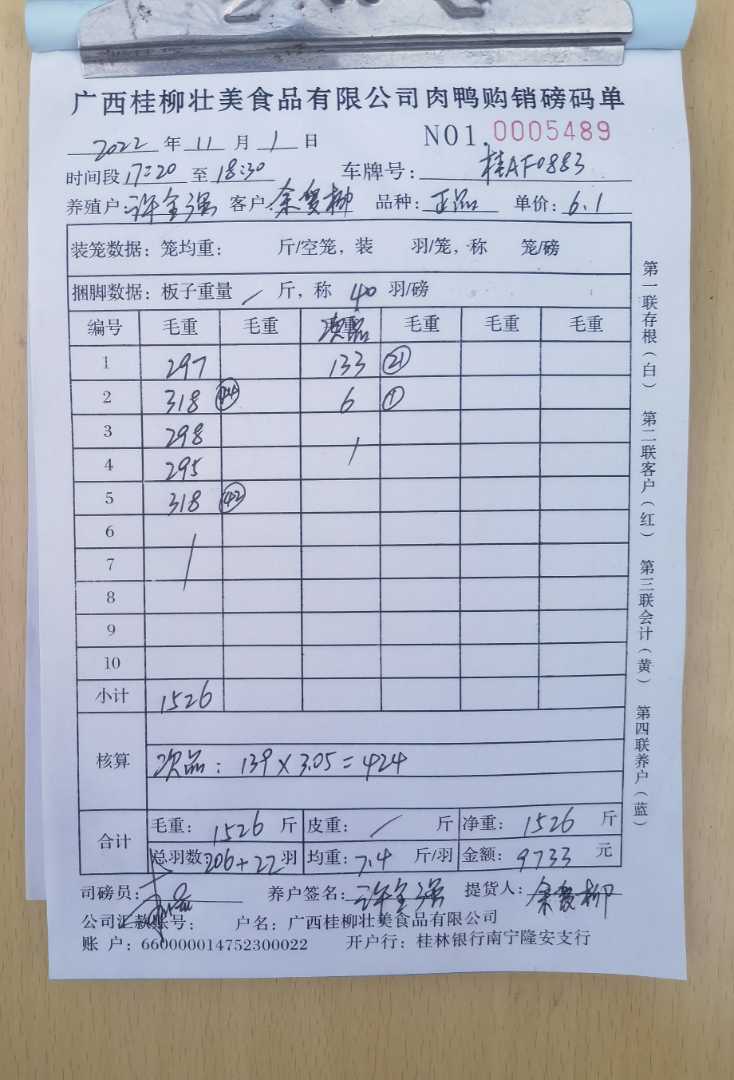 广西桂柳壮美食品有限公司肉鸭购销磅码单
2022 年 11 月 1 日 NO1. 0005489
时间段 17:20 至 18:30 车牌号: 桂AF0883
养殖户: 许全强 客户: 余贤柳 品种: 正品 单价: 6.1
装笼数据: 笼均重: 斤/空笼, 装 羽/笼, 称 笼/磅
捆脚数据: 板子重量 / 斤, 称 40 羽/磅
编号 毛重 毛重 次品 毛重 毛重 毛重
1 297 133 (21)
2 318 (44) 6 (1)
3 298 /
4 295
5 318 (42)
6 /
7
8
9
10
小计 1526
核算 次品: 139 × 3.05 = 424
合计 毛重: 1526 斤 皮重: / 斤 净重: 1526 斤
总羽数: 206+22 羽 均重: 7.4 斤/羽 金额: 9733 元
司磅员: 养户签名: 许全强 提货人: 余贤柳
公司汇款账号: 户名: 广西桂柳壮美食品有限公司
账 户: 660000014752300022 开户行: 桂林银行南宁隆安支行
第一联存根(白) 第二联客户(红) 第三联会计(黄) 第四联养户(蓝)